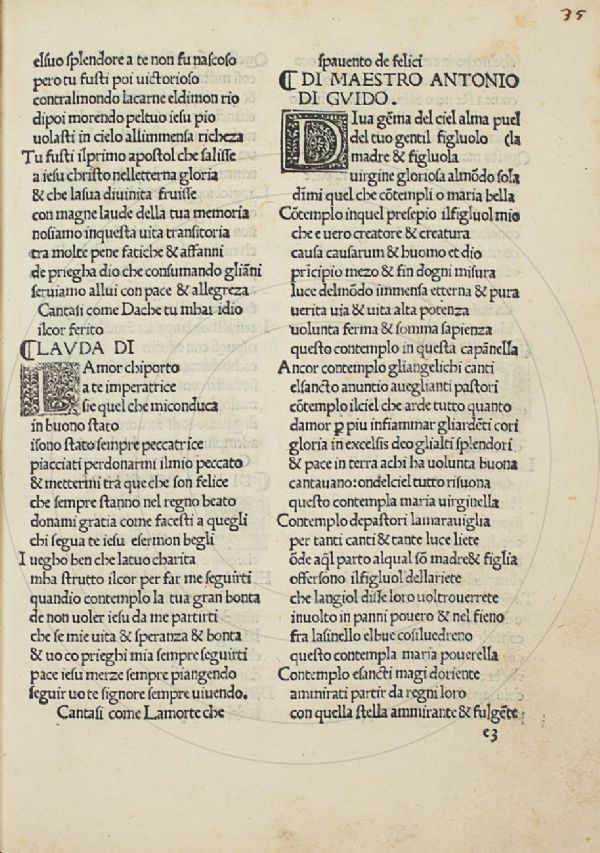 35
elsuo splendore a te non fu nascoso
pero tu fusti poi uictorioso
contralmondo lacarne eldimon rio
dipoi morendo peltuo iesu pio
uolasti in cielo allimmensa richeza
Tu fusti ilprimo apostol che salisse
a iesu christo nelletterna gloria
& che lasua diuinita fruisse
con magne laude della tua memoria
nosiamo inquesta uita transitoria
tra molte pene fatiche & affanni
de priegha dio che consumando gliāni
seruiamo allui con pace & allegreza
Cantasi come Dache tu mhai idio
ilcor ferito
⁋LAVDA DI
LAmor chiporto
a te imperatrice
sie quel che miconduca
in buono stato
isono stato sempre peccatrice
piacciati perdonarmi ilmio peccato
& mettermi tra que che son felice
che sempre stanno nel regno beato
donami gratia come facesti a quegli
chi segua te iesu esermon begli
I uegho ben che latuo charita
mha strutto ilcor per far me seguirti
quandio contemplo la tua gran bonta
de non uoler iesu da me partirti
che se mie uita & speranza & bonta
& uo co prieghi mia sempre seguirti
pace iesu merze sempre piangendo
seguir uo te signore sempre uiuendo.
Cantasi come Lamorte che
spauento de felici
⁋DI MAESTRO ANTONIO
DI GVIDO.
DIua gēma del ciel alma puel
del tuo gentil figluolo (la
madre & figluola
uirgine gloriosa almōdo sola
dimi quel che cōtempli o maria bella
Cōtemplo inquel presepio ilfigluol mio
che e uero creatore & creatura
causa causarum & huomo et dio
pricipio mezo & fin dogni misura
luce delmōdo immensa etterna & pura
uerita uia & uita alta potenza
uolunta ferma & somma sapienza
questo contemplo in questa capānella
Ancor contemplo gliangelichi canti
elsancto anuntio aueglianti pastori
cōtemplo ilciel che arde tutto quanto
damor ꝑ piu infiammar gliardēti cori
gloria in excelsis deo glialti splendori
& pace in terra achi ha uolunta buona
cantauano: ondelciel tutto risuona
questo contempla maria uirginella
Contemplo depastori lamarauiglia
per tanti canti & tante luce liete
ōde aq̄l parto alqual sō madre& figlia
offersono ilfigluol dellariete
che langiol disse loro uoltrouerrete
inuolto in panni pouero & nel fieno
fra lasinello elbue cosiluedreno
questo contempla maria pouerella
Contemplo esancti magi doriente
ammirati partir da regni loro
con quella stella ammirante & fulgēte
e3